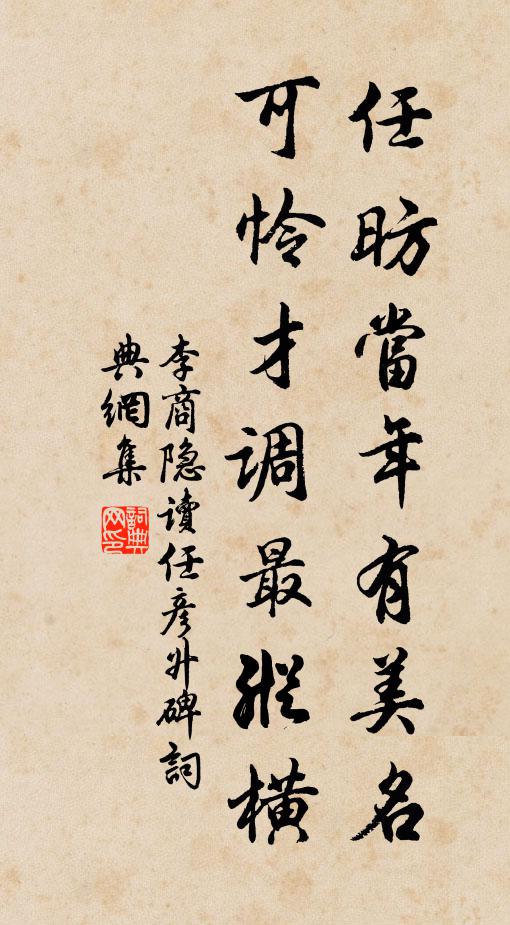 任昉當年有美名
可怜才调最縱横
李商隐讀任彦升碑詞
典網集
詞典
网印